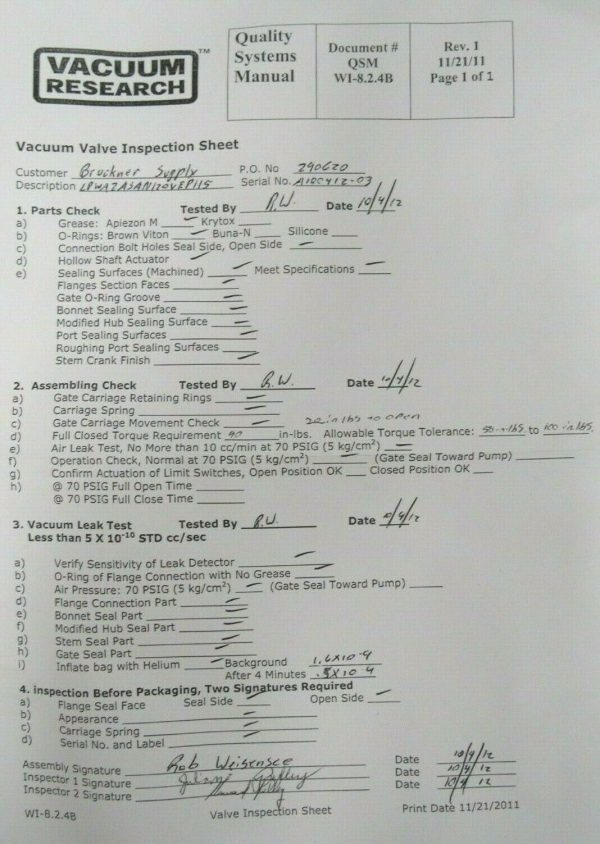 VACUUM RESEARCH ™
Quality Systems Manual
Document # QSM WI-8.2.4B
Rev. 1 11/21/11 Page 1 of 1
Vacuum Valve Inspection Sheet
Customer Bruckner Supply P.O. No 290620
Description Serial No.
1. Parts Check Tested By R.W. Date 10/4/12
a) Grease: Apiezon M Krytox
b) O-Rings: Brown Viton Buna-N Silicone
c) Connection Bolt Holes Seal Side, Open Side
d) Hollow Shaft Actuator
e) Sealing Surfaces (Machined) Meet Specifications
Flanges Section Faces
Gate O-Ring Groove
Bonnet Sealing Surface
Modified Hub Sealing Surface
Port Sealing Surfaces
Roughing Port Sealing Surfaces
Stem Crank Finish
2. Assembling Check Tested By R.W. Date 10/4/12
a) Gate Carriage Retaining Rings
b) Carriage Spring
c) Gate Carriage Movement Check 20 in lbs to open
d) Full Closed Torque Requirement 90 in-lbs. Allowable Torque Tolerance: to 100 in lbs.
e) Air Leak Test, No More than 10 cc/min at 70 PSIG (5 kg/cm²)
f) Operation Check, Normal at 70 PSIG (5 kg/cm²) (Gate Seal Toward Pump)
g) Confirm Actuation of Limit Switches, Open Position OK Closed Position OK
h) @ 70 PSIG Full Open Time
@ 70 PSIG Full Close Time
3. Vacuum Leak Test Tested By R.W. Date 10/4/12
Less than 5 X 10⁻¹⁰ STD cc/sec
a) Verify Sensitivity of Leak Detector
b) O-Ring of Flange Connection with No Grease
c) Air Pressure: 70 PSIG (5 kg/cm²) (Gate Seal Toward Pump)
d) Flange Connection Part
e) Bonnet Seal Part
f) Modified Hub Seal Part
g) Stem Seal Part
h) Gate Seal Part
i) Inflate bag with Helium Background 1.6X10-9
After 4 Minutes .5X10-9
4. inspection Before Packaging, Two Signatures Required
a) Flange Seal Face Seal Side Open Side
b) Appearance
c) Carriage Spring
d) Serial No. and Label
Assembly Signature Rob Weisensee Date 10/4/12
Inspector 1 Signature Date 10/4/12
Inspector 2 Signature Date 10/4/12
WI-8.2.4B Valve Inspection Sheet Print Date 11/21/2011